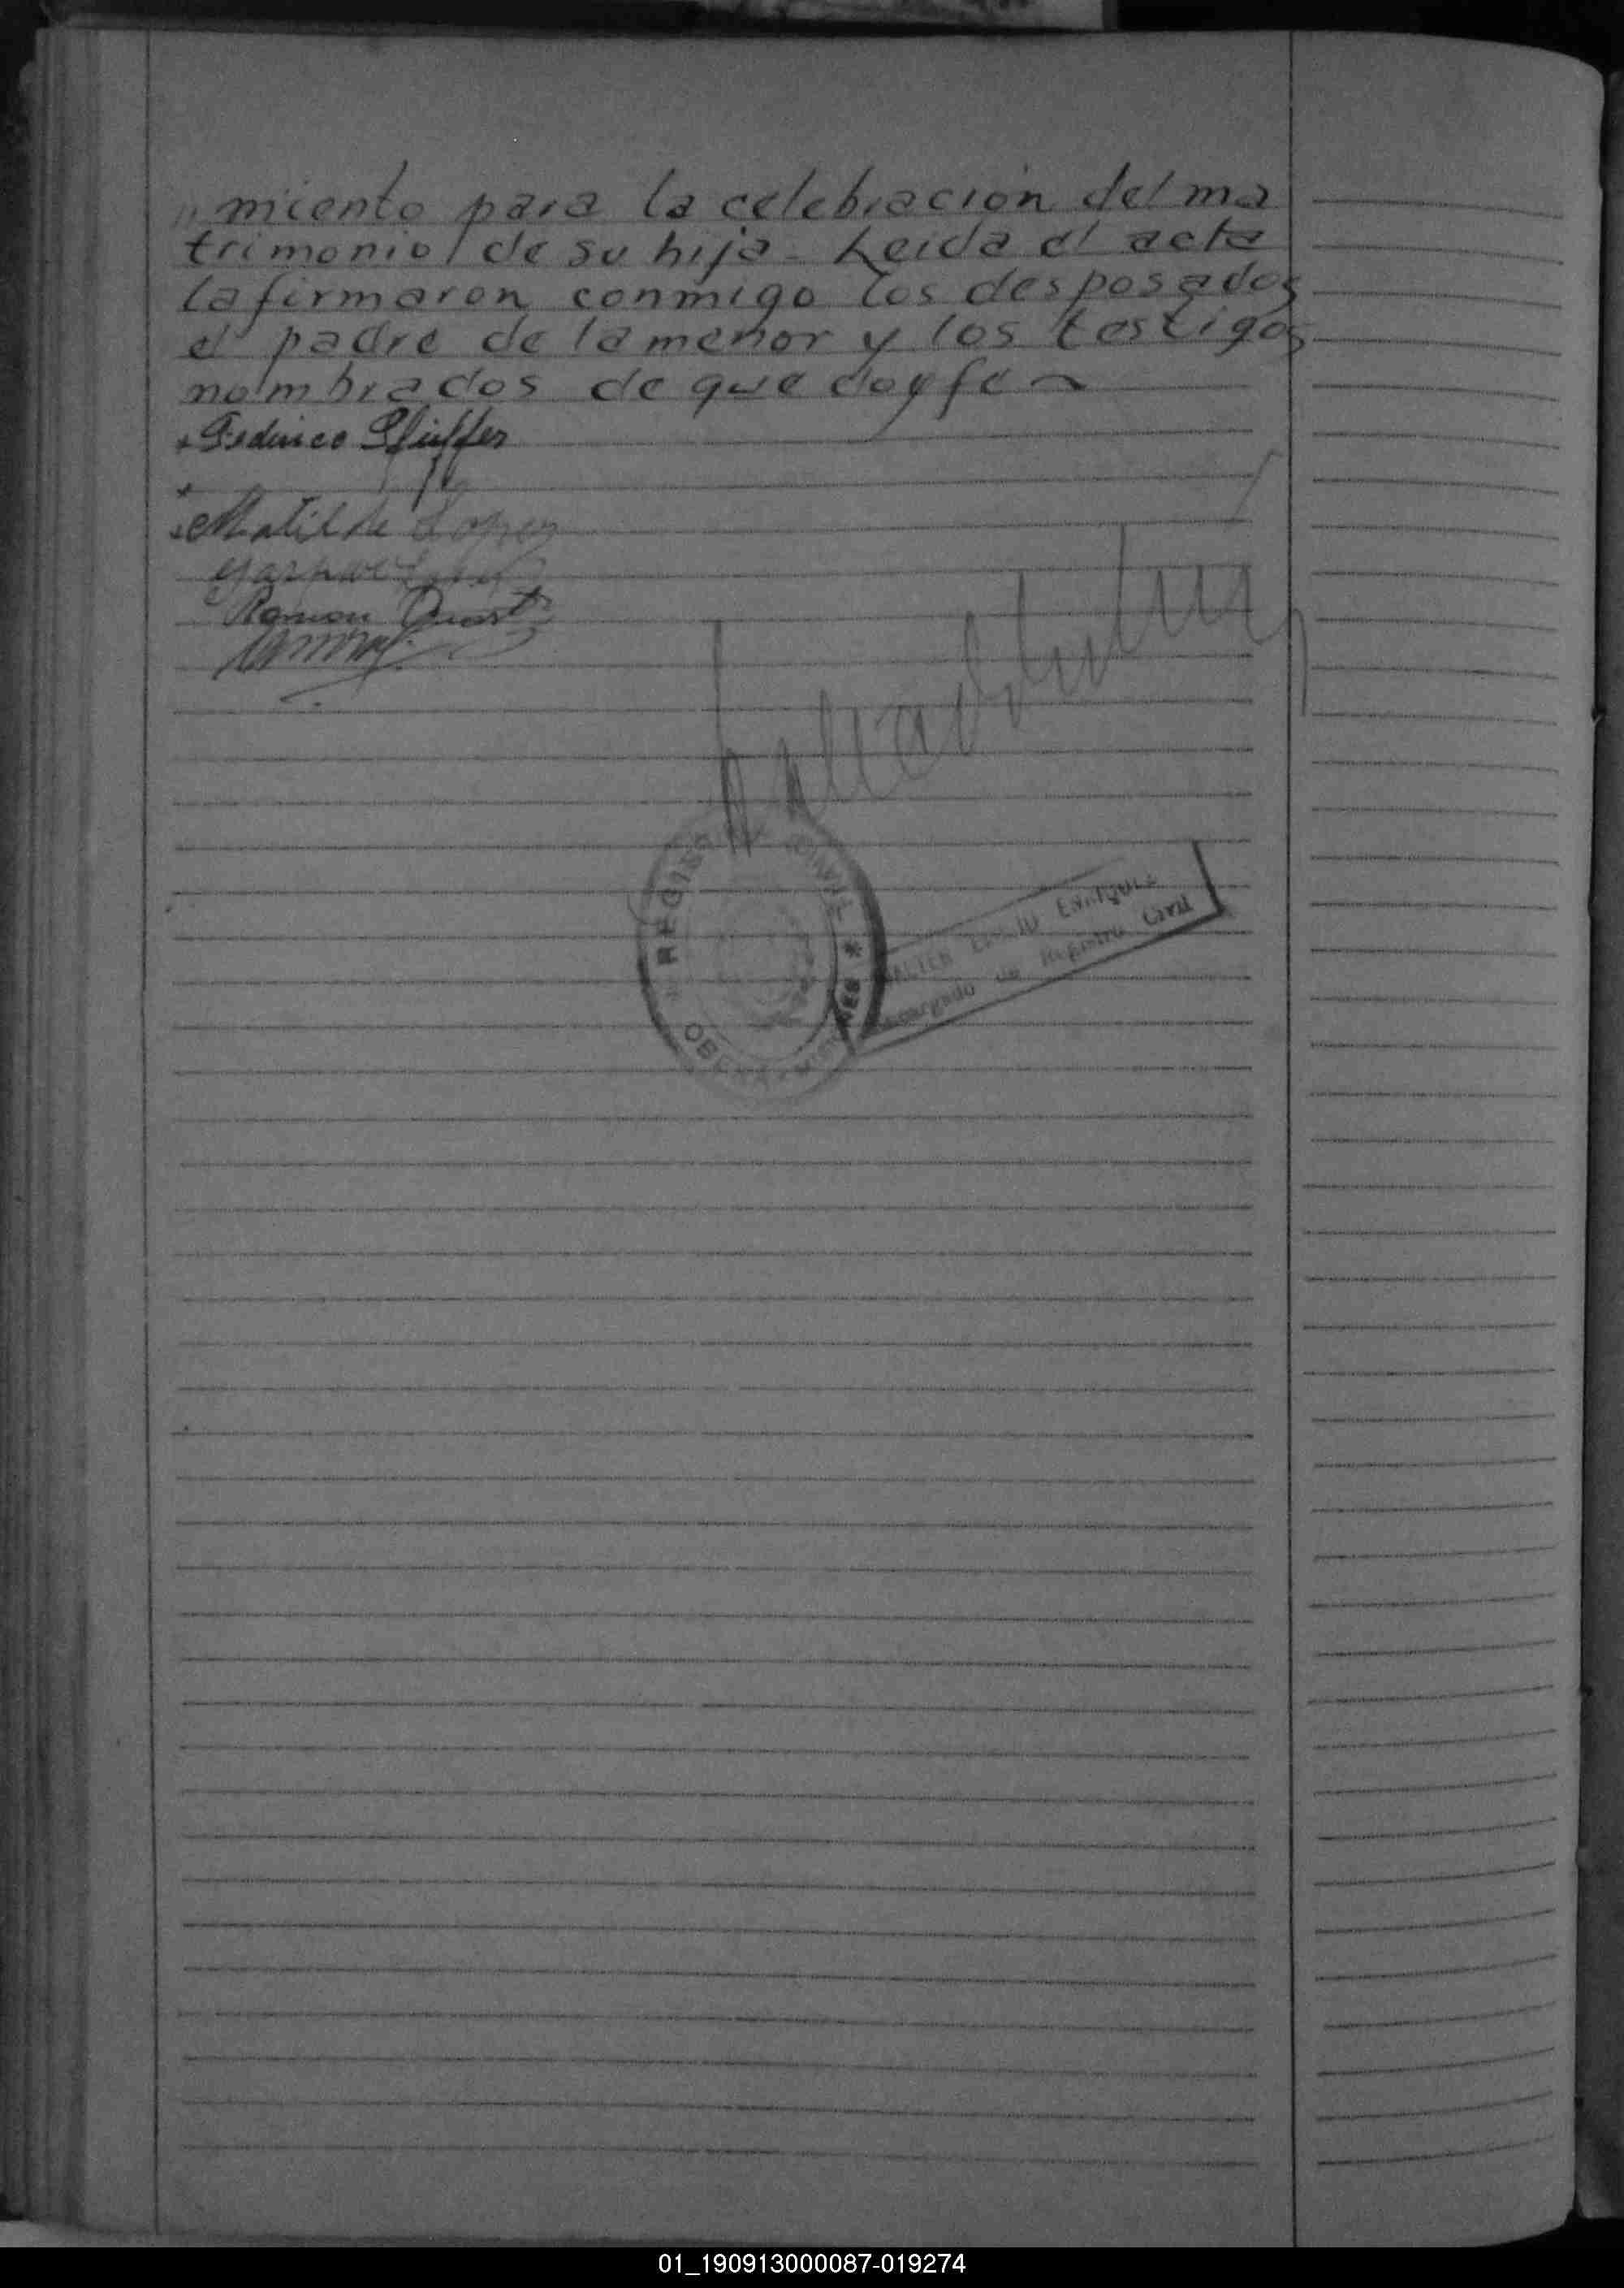 miento para la celebración del ma
trimonio de su hija - Leida el acta
la firmaron conmigo los desposados
el padre de la menor y los testigos
nombrados de que doy fe
Federico Pfeiffer
Matilde Lopez
Ramon
REGISTRO CIVIL *
OBERA - MISIONES
WALTER ENRIQUE
Encargado de Registro Civil
01_190913000087-019274